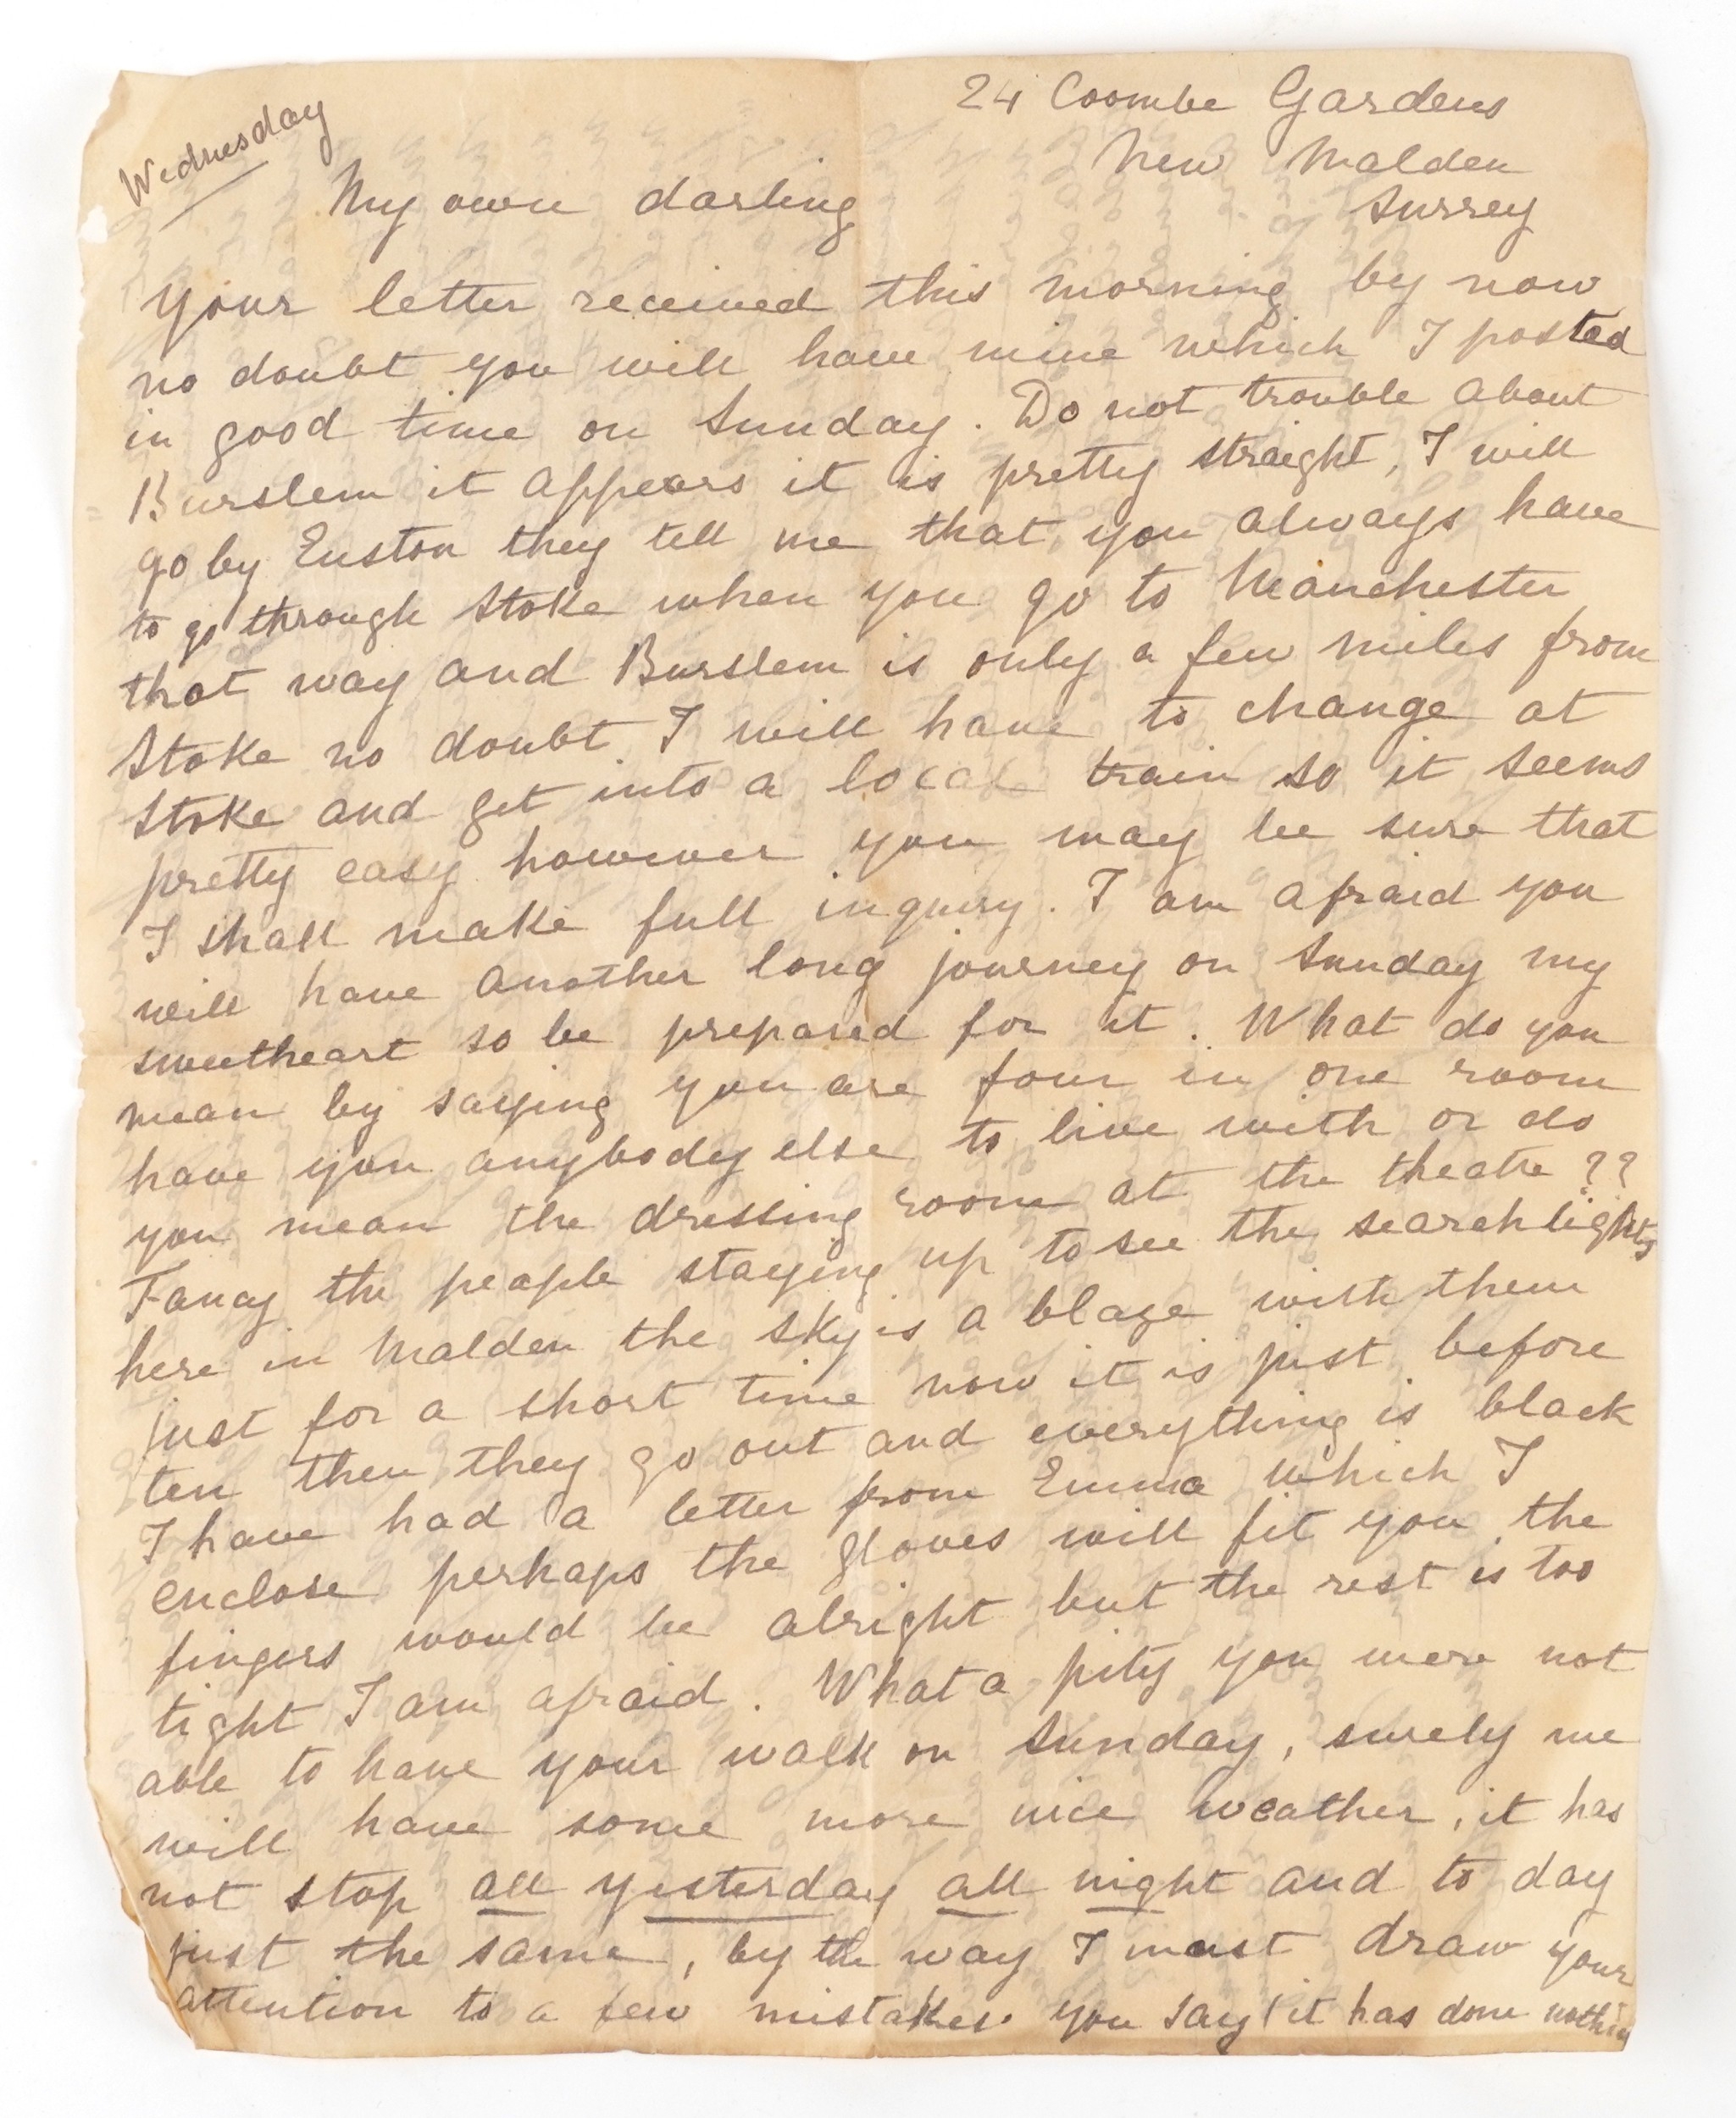 24 Coombe Gardens
Wednesday
New Malden
Surrey
My own darling
Your letter received this morning by now
no doubt you will have mine which I posted
in good time on Sunday. Do not trouble about
Burslem it appears it is pretty straight, I will
go by Euston they tell me that you always have
to go through Stoke when you go to Manchester
that way and Burslem is only a few miles from
Stoke no doubt I will have to change at
Stoke and get into a local train so it seems
pretty easy however you may be sure that
I shall make full inquiry. I am afraid you
will have another long journey on Sunday my
sweetheart so be prepared for it. What do you
mean by saying you are four in one room
have you anybody else to live with or do
you mean the dressing room at the theatre ??
Fancy the people staying up to see the searchlights
here in Malden the sky is a blaze with them
just for a short time now it is just before
ten then they go out and everything is black
I have had a letter from Emma which I
enclose perhaps the gloves will fit you the
fingers would be alright but the rest is too
tight I am afraid. What a pity you were not
able to have your walk on Sunday, surely we
will have some more nice weather, it has
not stop all yesterday all night and to day
just the same, by the way I must draw your
attention to a few mistakes. you say it has done nothing